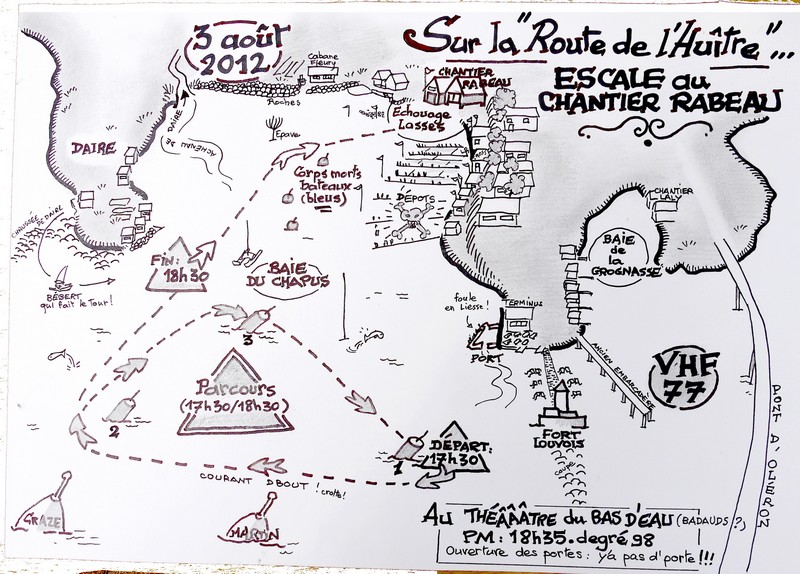 3 août
2012
Sur la "Route de l'Huître"...
ESCALE au
CHANTIER RABEAU
Cabane
Fleury
Roches
CHANTIER
RABEAU
Echouage
Lasses
Epave
DAIRE
CHENAL DE DAIRE
Corps morts
bateaux
(bleus)
DÉPOTS
CHANTIER
LALY
BAIE
de la
GROGNASSE
CHAUSSÉE DE DAIRE
FIN:
18h30
BAIE
DU CHAPUS
BÉBERT
qui fait le Tour!
foule
en Liesse!
TERMINUS
PORT
ANCIEN EMBARCADÈRE
VHF
77
3
Parcours
(17h30/18h30)
2
1
DÉPART:
17h30
FORT
LOUVOIS
PONT D'OLERON
COURANT DBOUT! (crotte!)
GRAZE
MARTIN
AU THÉÂÂÂTRE du BAS D'EAU (BADAUDS ?)
PM: 18h35.degré 98
Ouverture des portes: y'a pas d'porte!!!